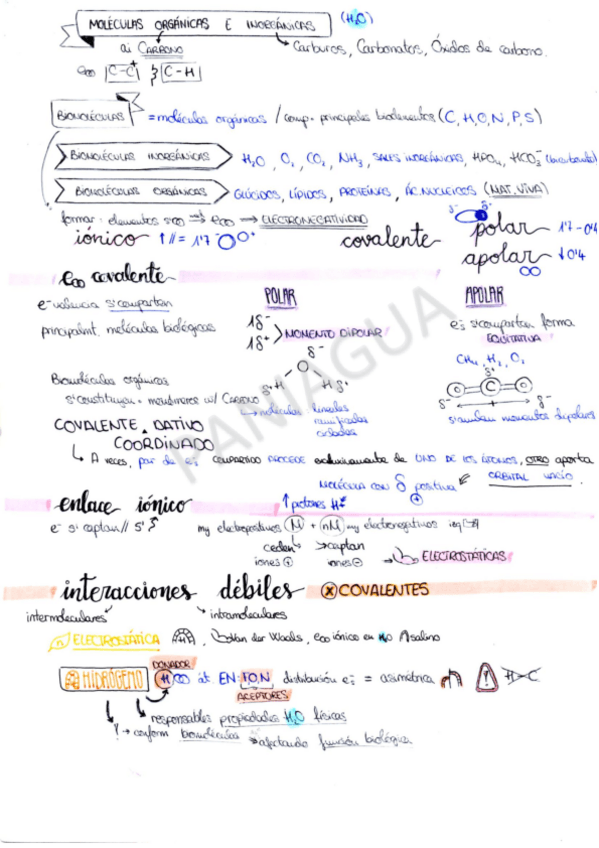 MOLÉCULAS ORGÁNICAS E INORGÁNICAS (H₂O)
CARBONO Carburos, Carbonatos, Óxidos de carbono.
C-C C-H
BIOMOLÉCULAS = moléculas orgánicas / comp. principales bioelementos (C, H, O, N, P, S)
BIOMOLÉCULAS INORGÁNICAS H₂O, O₂, CO₂, NH₃, SALES INORGÁNICAS, HPO₄, HCO₃⁻ (bicarbonato)
BIOMOLÉCULAS ORGÁNICAS GLÚCIDOS, LÍPIDOS, PROTEÍNAS, ÁC. NUCLEICOS (MAT. VIVA)
formar elementos ELECTRONEGATIVIDAD
iónico ↑ // = 1'7 covalente polar 1'7-0'4
apolar ↓0'4
covalente
e⁻ valencia s'compartan POLAR APOLAR
principalmt. moléculas biológicas 1δ⁻ 1δ⁺ MOMENTO DIPOLAR
s'compartan forma EQUITATIVA
CH₄, H₂, O₂
Biomoléculas orgánicas δ⁻ O δ⁺ H H δ⁺
δ⁺ O C O δ⁻ δ⁻
CARBONO moléculas lineales
ramificadas
s'anulan momentos dipolares
COVALENTE DATIVO
COORDINADO
A veces, par de e⁻ COMPARTIDO PROCEDE exclusivamente de UNO DE LOS ÁTOMOS, OTRO aporta ORBITAL VACÍO.
MOLÉCULA CON δ positiva
enlace iónico ↑ protones H⁺
e⁻ s'captan // s' my electropositivos M + nM my electronegativos
ceden captan
iones ⊕ iones ⊖ ELECTROSTÁTICAS
interacciones débiles COVALENTES
intermoleculares intramoleculares
ELECTROSTÁTICA Van der Waals, iónico en H₂O salino
DONADOR
HIDRÓGENO H át EN: F,O,N distribución e⁻ = asimétrica H-C
ACEPTORES
responsables propiedades H₂O físicas
y conform biomoléculas afectando función biológica
PANIAGUA